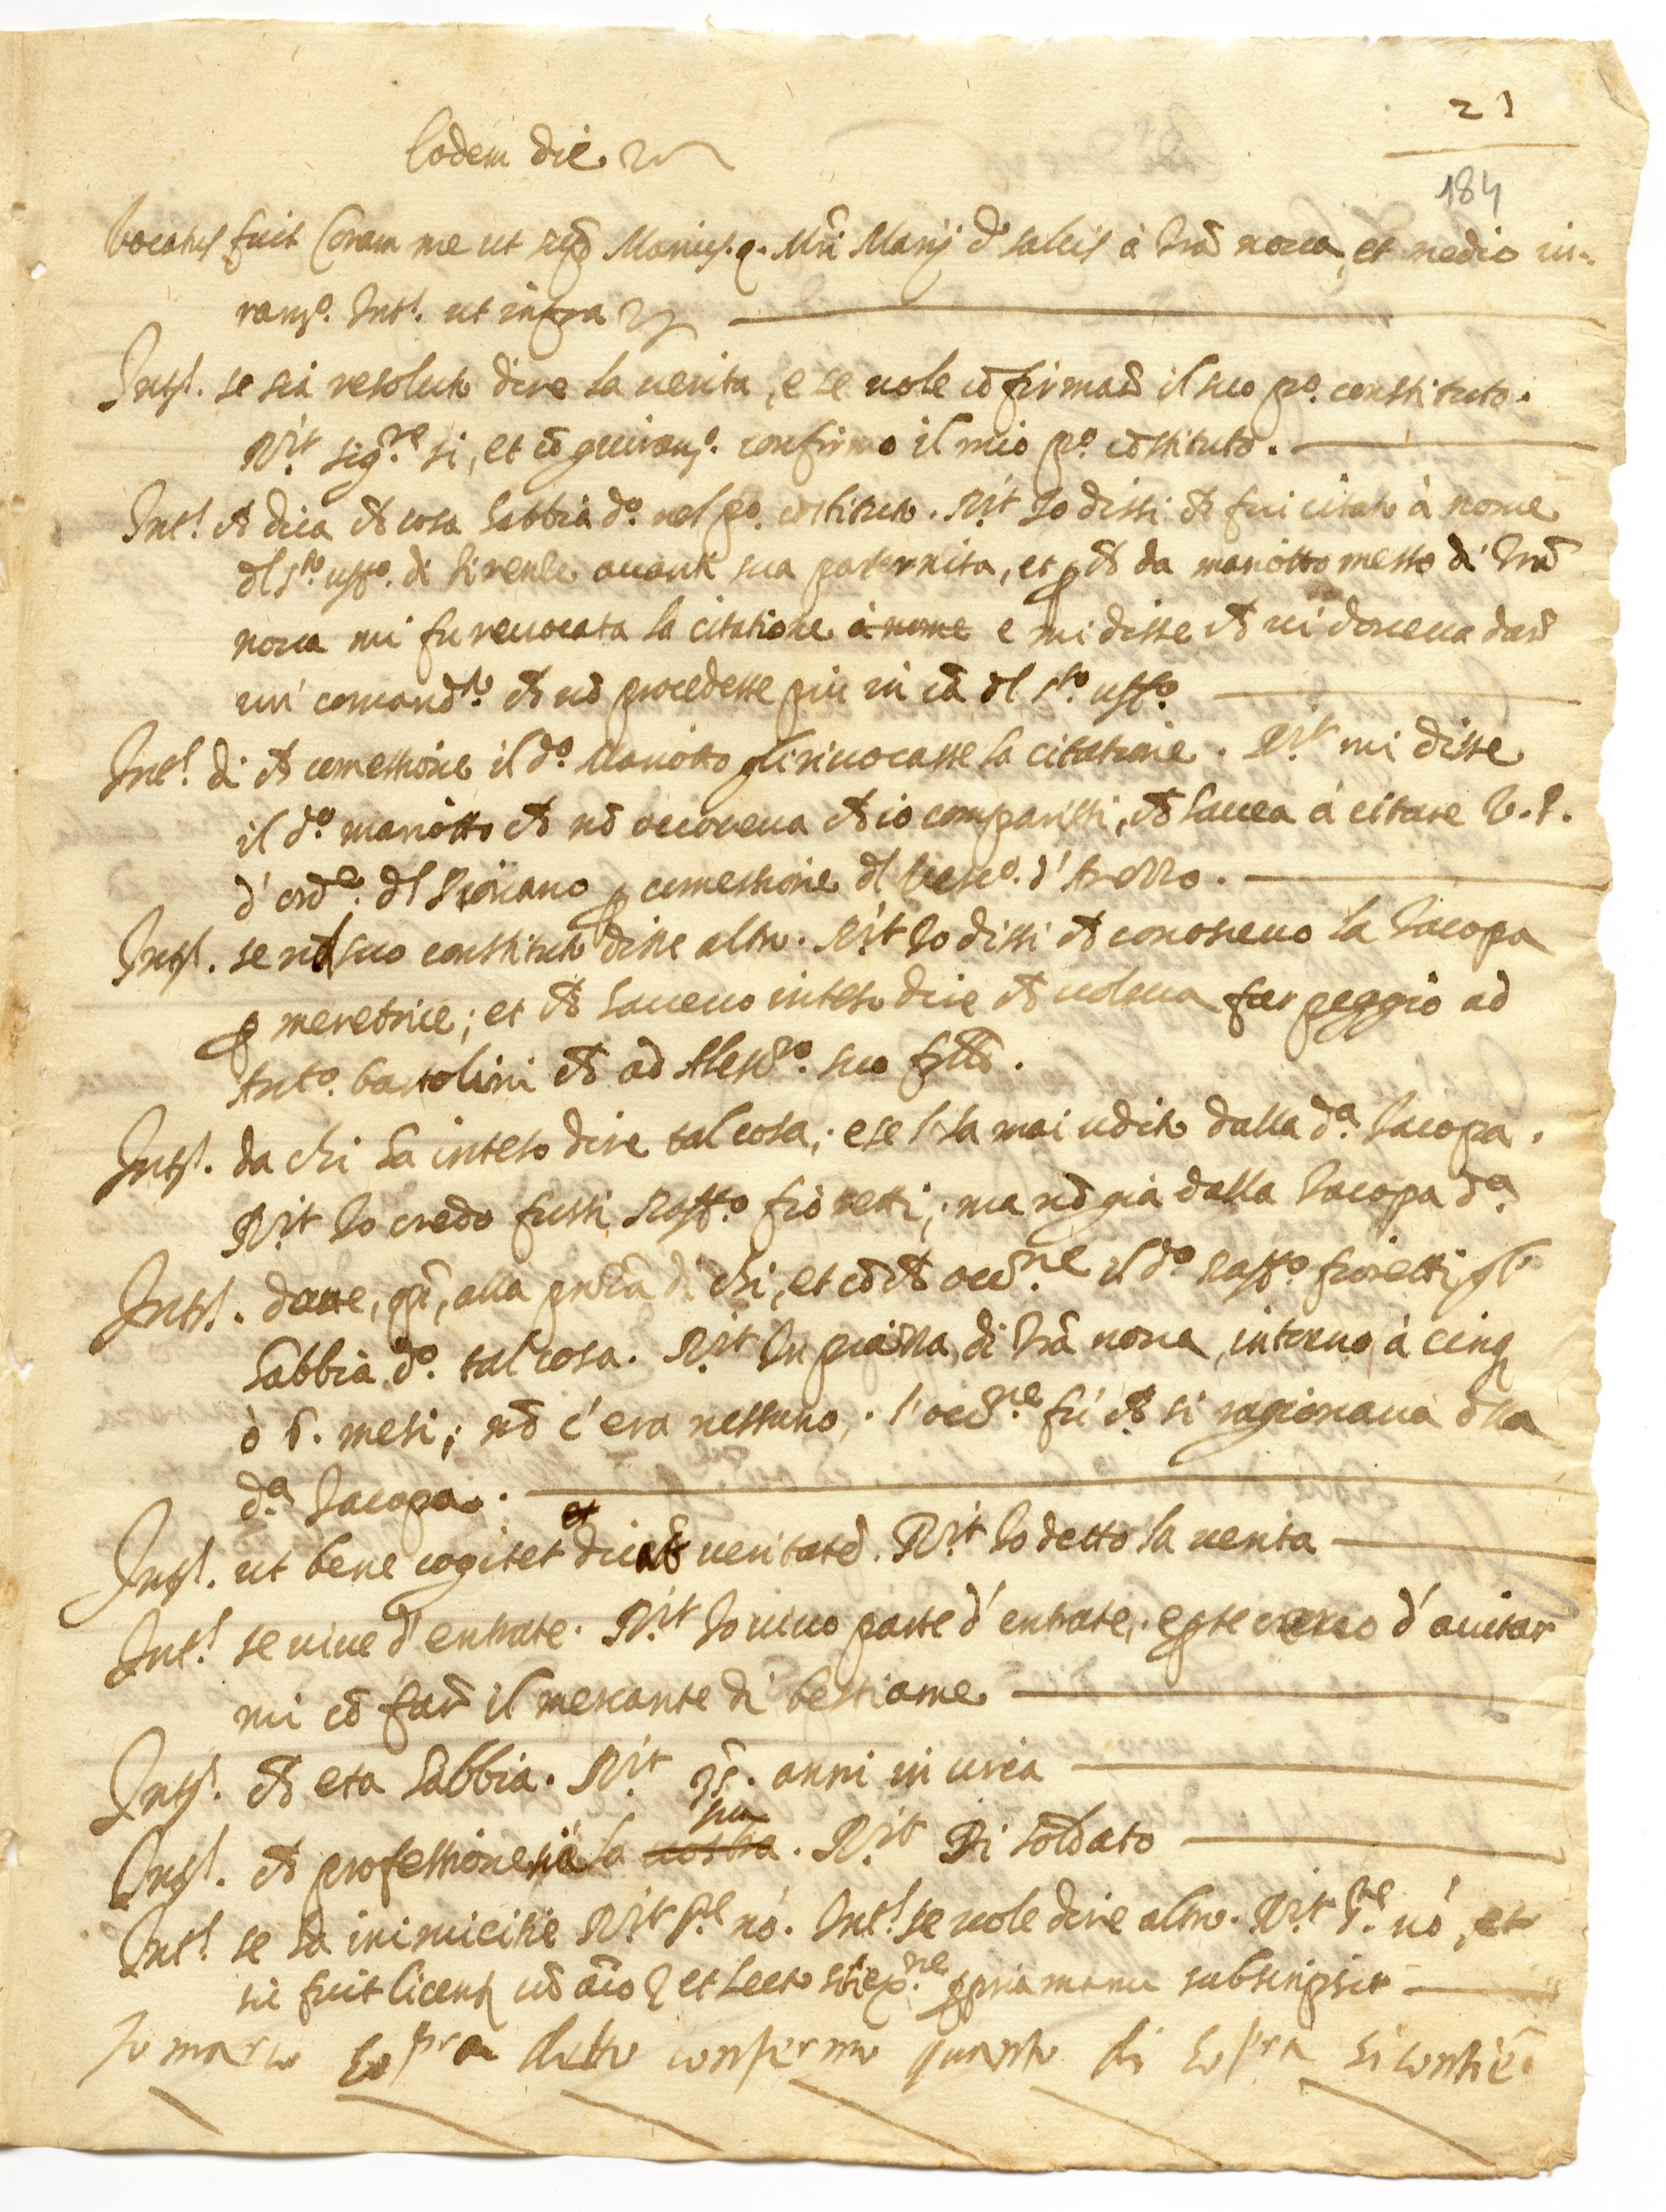 21
184
Eodem die
Vocatus fuit Coram me ut sup.a Marius q. Mri Marij de salcis à Trã nova, et medio iu-
ram.to Int.s ut infra
Int.s se sia resoluto dire la verita, e se vole cõfirmar il suo p.o constituto.
R.it sig.re si, et cõ giuram.to confirmo il mio p.o cõstituto.
Int.s ch dica ch cosa habbia d.o nel p.o cõstituto. R.it Io dissi ch fui citato à nome
del s.to uff.o di firenle avanti sua paternita, et p ch da mariotto messo di Trã
nova mi fu revocata la citatione à nome e mi disse ch vi doveva dar
un' comand.to ch nõ procedesse piu in cã del s.to uff.o
Int.s di ch comessione il d.o Mariotto gli rivocasse la citatione. R.it mi disse
il d.o mariotto ch nõ occoreva ch io comparissi, ch havea à citare V.P.
d' ord.e del Piovano p comessione del Vesc.o d' Arezzo.
Int.s se nel suo constituto disse altro. R.it Io dissi ch conoscevo la Iacopa
p meretrice; et ch havevo inteso dire ch voleva far peggio ad
Ant.o bartolini ch ad Aless.o suo frãllo.
Int.s da chi ha inteso dire tal cosa; e se l'ha mai udito dalla d.a Iacopa.
R.it Io credo fussi Raff.o fioretti; ma nõ già dalla Iacopa d.a
Int.s dove, qñ, alla pñtia di chi, et cõ ch occ.ne il d.o Raff.o fioretti gl'
habbia d.o tal cosa. R.it In piazza di Trã nova, intorno à cinq
ò 6. mesi; nõ c'era nessuno; l'occ.ne fù ch si ragionava della
d.a Iacopa.
Int.s ut bene cogitet et dicat veritatẽ. R.it Io detto la verita
Int.s se vive d'entrate. R.it Io vivo parte d'entrate; e pte cerco d'aiutar
mi cõ far il mercante di bestiame
Int.s ch eta habbia. R.it 35. anni in circa
Int.s ch professione sia la vostra sua. R.it Di soldato
Int.s se ha inimicitie R.it S.re nò. Int.s se vole dire altro. R.it S.re nò, et
sic fuit licent. cõ et lecto sibi ex.ne ppria manu subscripsit
Io mario sopra detto confermo quanto di sopra si contiẽ